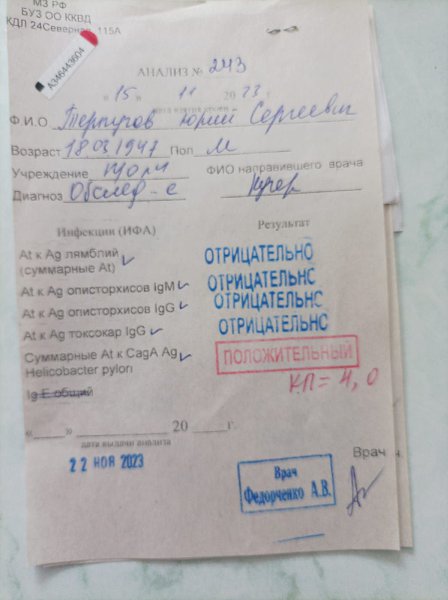 МЗ РФ
БУЗ ОО ККВД
КДЛ 24Северная, 115А
А346443604
АНАЛИЗ № 243
« 15 » 11 20 23 г.
Ф.И.О Терпугов Юрий Сергеевич
Возраст 18.03.1947 Пол М
Учреждение ФИО направившего врача
Диагноз Обслед-е Кучер
Инфекции (ИФА) Результат
At к Ag лямблий (суммарные At) ОТРИЦАТЕЛЬНО
At к Ag описторхисов IgM ОТРИЦАТЕЛЬНО
At к Ag описторхисов IgG ОТРИЦАТЕЛЬНО
At к Ag токсокар IgG ОТРИЦАТЕЛЬНО
Суммарные At к CagA Ag ПОЛОЖИТЕЛЬНЫЙ
Helicobacter pylori КП = 4,0
Ig E общий
«____» ________ 20 ____г.
дата выдачи анализа
22 НОЯ 2023
Врач
Врач
Федорченко А.В.